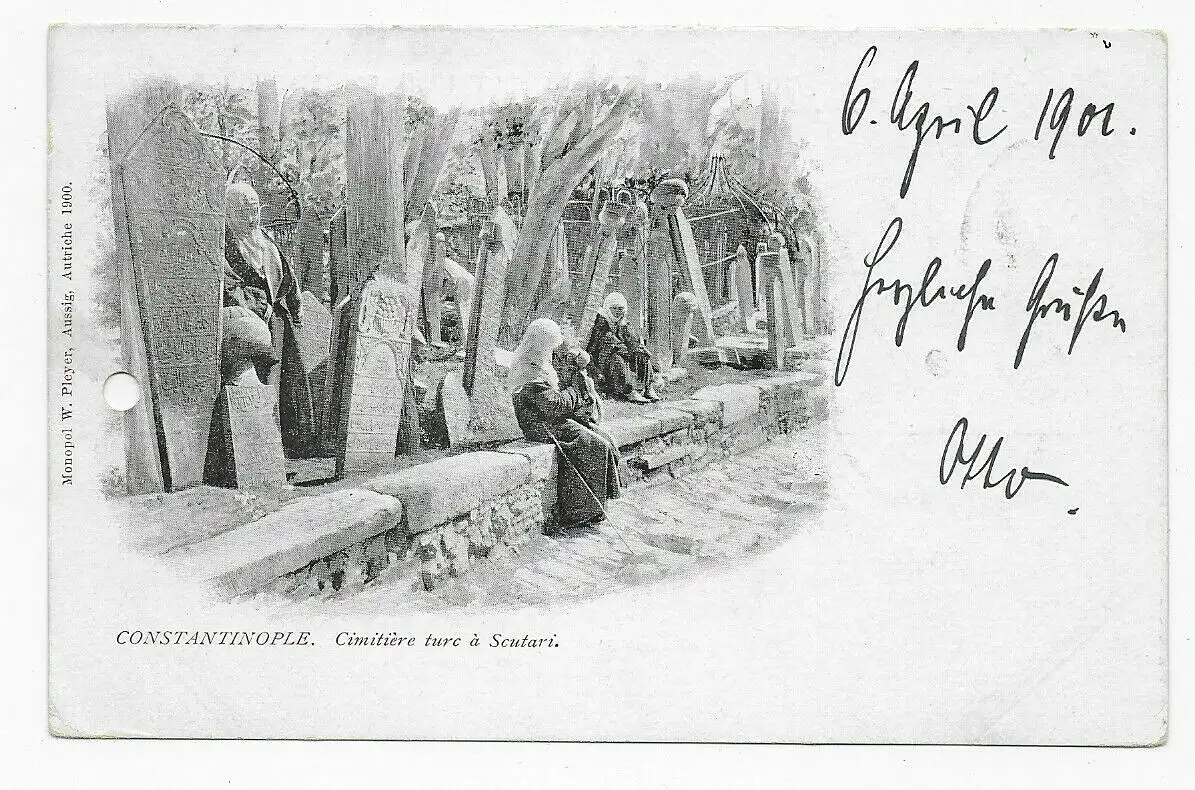 6. April 1901.
Herzliche Grüße
Otto.
Monopol W. Pleyer, Aussig, Autriche 1900.
CONSTANTINOPLE. Cimitière turc à Scutari.